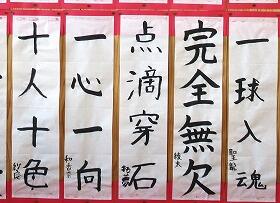 一球入魂
聖龍
完全無欠
綾太
点滴穿石
一心一向
十人十色